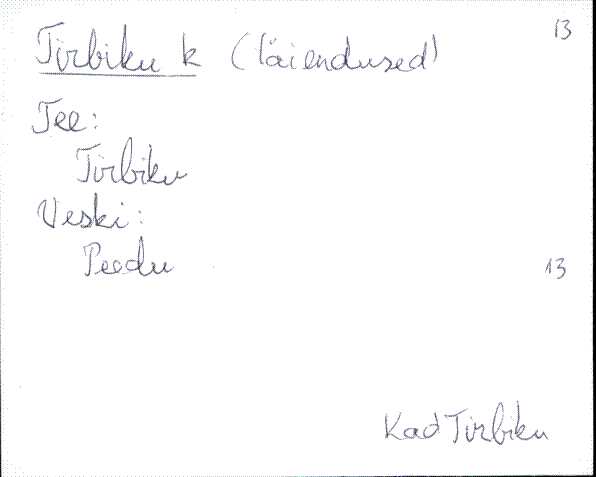 Tirbiku k (täiendused) 13
Tee:
Tirbiku
Veski:
Peedu 13
Kad Tirbiku